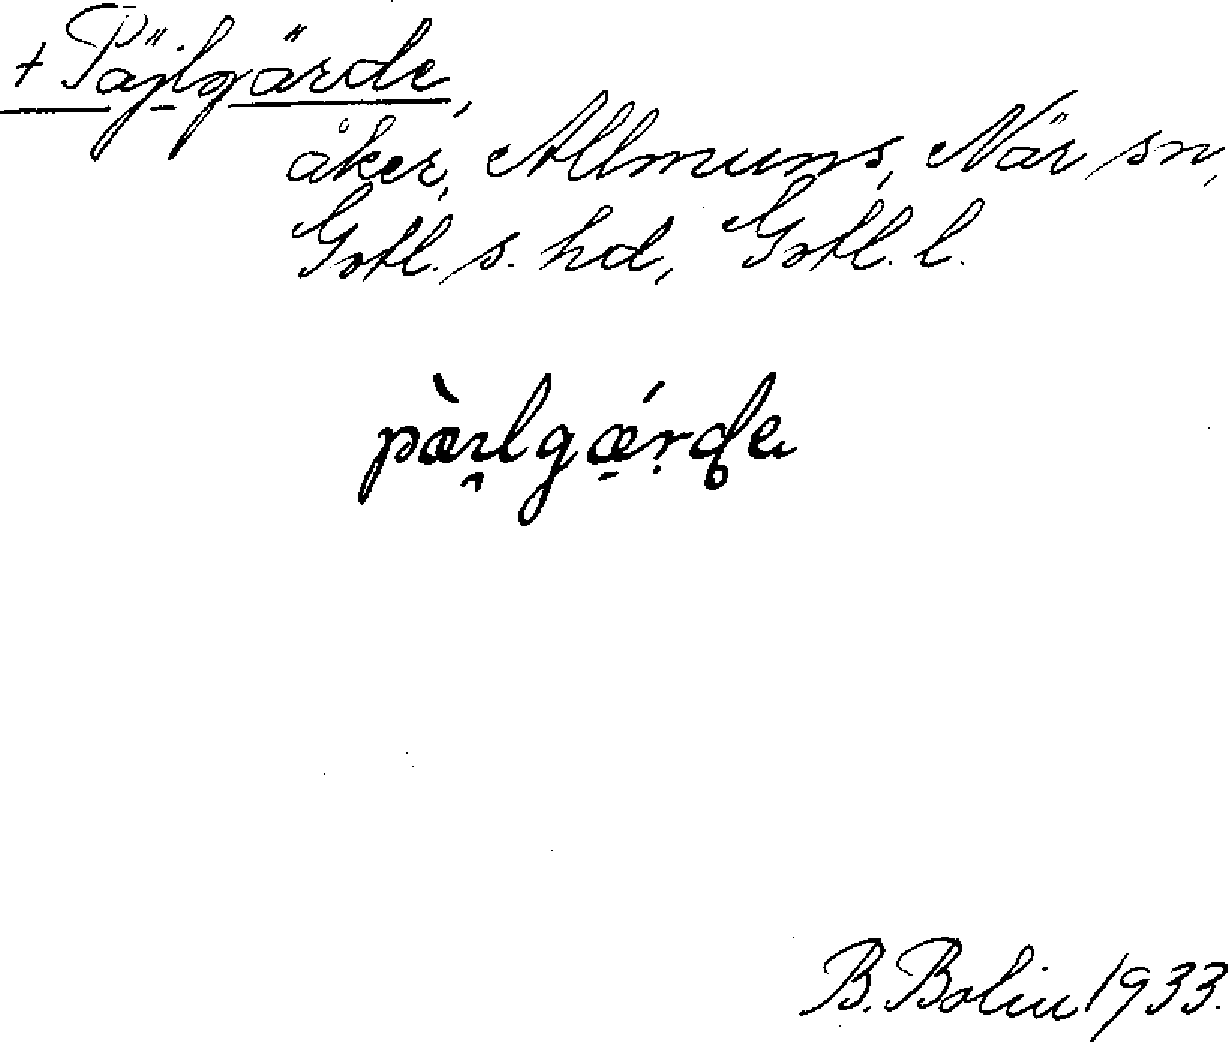 + Päjlgärde,
åker, Allmuns, När sn,
Gotl. s. hd, Gotl. l.
pæ̀ɪ̯lgǽrde
B. Bolin 1933.